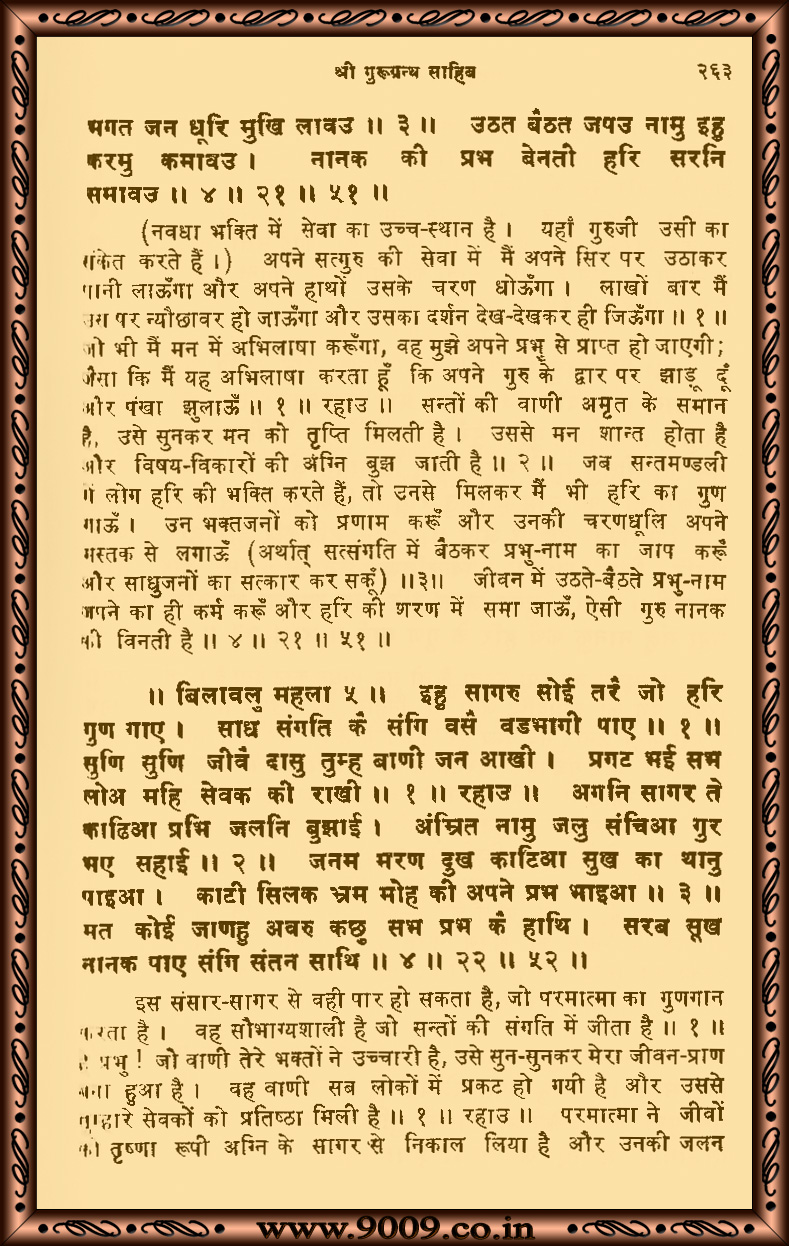 श्री गुरूग्रन्थ साहिब २६३
भगत जन धूरि मुखि लावउ ॥ ३ ॥ उठत बैठत जपउ नामु इहु
करमु कमावउ । नानक की प्रभ बेनती हरि सरनि
समावउ ॥ ४ ॥ २१ ॥ ५१ ॥
(नवधा भक्ति में सेवा का उच्च-स्थान है । यहाँ गुरुजी उसी का
संकेत करते हैं ।) अपने सत्गुरु की सेवा में मैं अपने सिर पर उठाकर
पानी लाऊँगा और अपने हाथों उसके चरण धोऊँगा । लाखों बार मैं
उस पर न्यौछावर हो जाऊँगा और उसका दर्शन देख-देखकर ही जिऊँगा ॥ १ ॥
जो भी मैं मन में अभिलाषा करूँगा, वह मुझे अपने प्रभु से प्राप्त हो जाएगी;
जैसा कि मैं यह अभिलाषा करता हूँ कि अपने गुरु के द्वार पर झाड़ू दूँ
और पंखा झुलाऊँ ॥ १ ॥ रहाउ ॥ सन्तों की वाणी अमृत के समान
है, उसे सुनकर मन को तृप्ति मिलती है । उससे मन शान्त होता है
और विषय-विकारों की अग्नि बुझ जाती है ॥ २ ॥ जब सन्तमण्डली
में लोग हरि की भक्ति करते हैं, तो उनसे मिलकर मैं भी हरि का गुण
गाऊँ । उन भक्तजनों को प्रणाम करूँ और उनकी चरणधूलि अपने
मस्तक से लगाऊँ (अर्थात् सत्संगति में बैठकर प्रभु-नाम का जाप करूँ
और साधुजनों का सत्कार कर सकूँ) ॥३॥ जीवन में उठते-बैठते प्रभु-नाम
जपने का ही कर्म करूँ और हरि की शरण में समा जाऊँ, ऐसी गुरु नानक
की विनती है ॥ ४ ॥ २१ ॥ ५१ ॥
॥ बिलावलु महला ५ ॥ इहु सागरु सोई तरै जो हरि
गुण गाए । साध संगति कै संगि वसै वडभागी पाए ॥ १ ॥
सुणि सुणि जीवै दासु तुम्ह बाणी जन आखी । प्रगट भई सभ
लोअ महि सेवक की राखी ॥ १ ॥ रहाउ ॥ अगनि सागर ते
काढिआ प्रभि जलनि बुझाई । अंम्रित नामु जलु संचिआ गुर
भए सहाई ॥ २ ॥ जनम मरण दुख काटिआ सुख का थानु
पाइआ । काटी सिलक भ्रम मोह की अपने प्रभ भाइआ ॥ ३ ॥
मत कोई जाणहु अवरु कछु सभ प्रभ कै हाथि । सरब सूख
नानक पाए संगि संतन साथि ॥ ४ ॥ २२ ॥ ५२ ॥
इस संसार-सागर से वही पार हो सकता है, जो परमात्मा का गुणगान
करता है । वह सौभाग्यशाली है जो सन्तों की संगति में जीता है ॥ १ ॥
हे प्रभु ! जो वाणी तेरे भक्तों ने उच्चारी है, उसे सुन-सुनकर मेरा जीवन-प्राण
बना हुआ है । वह वाणी सब लोकों में प्रकट हो गयी है और उससे
तुम्हारे सेवकों को प्रतिष्ठा मिली है ॥ १ ॥ रहाउ ॥ परमात्मा ने जीवों
को तृष्णा रूपी अग्नि के सागर से निकाल लिया है और उनकी जलन
www.9009.co.in